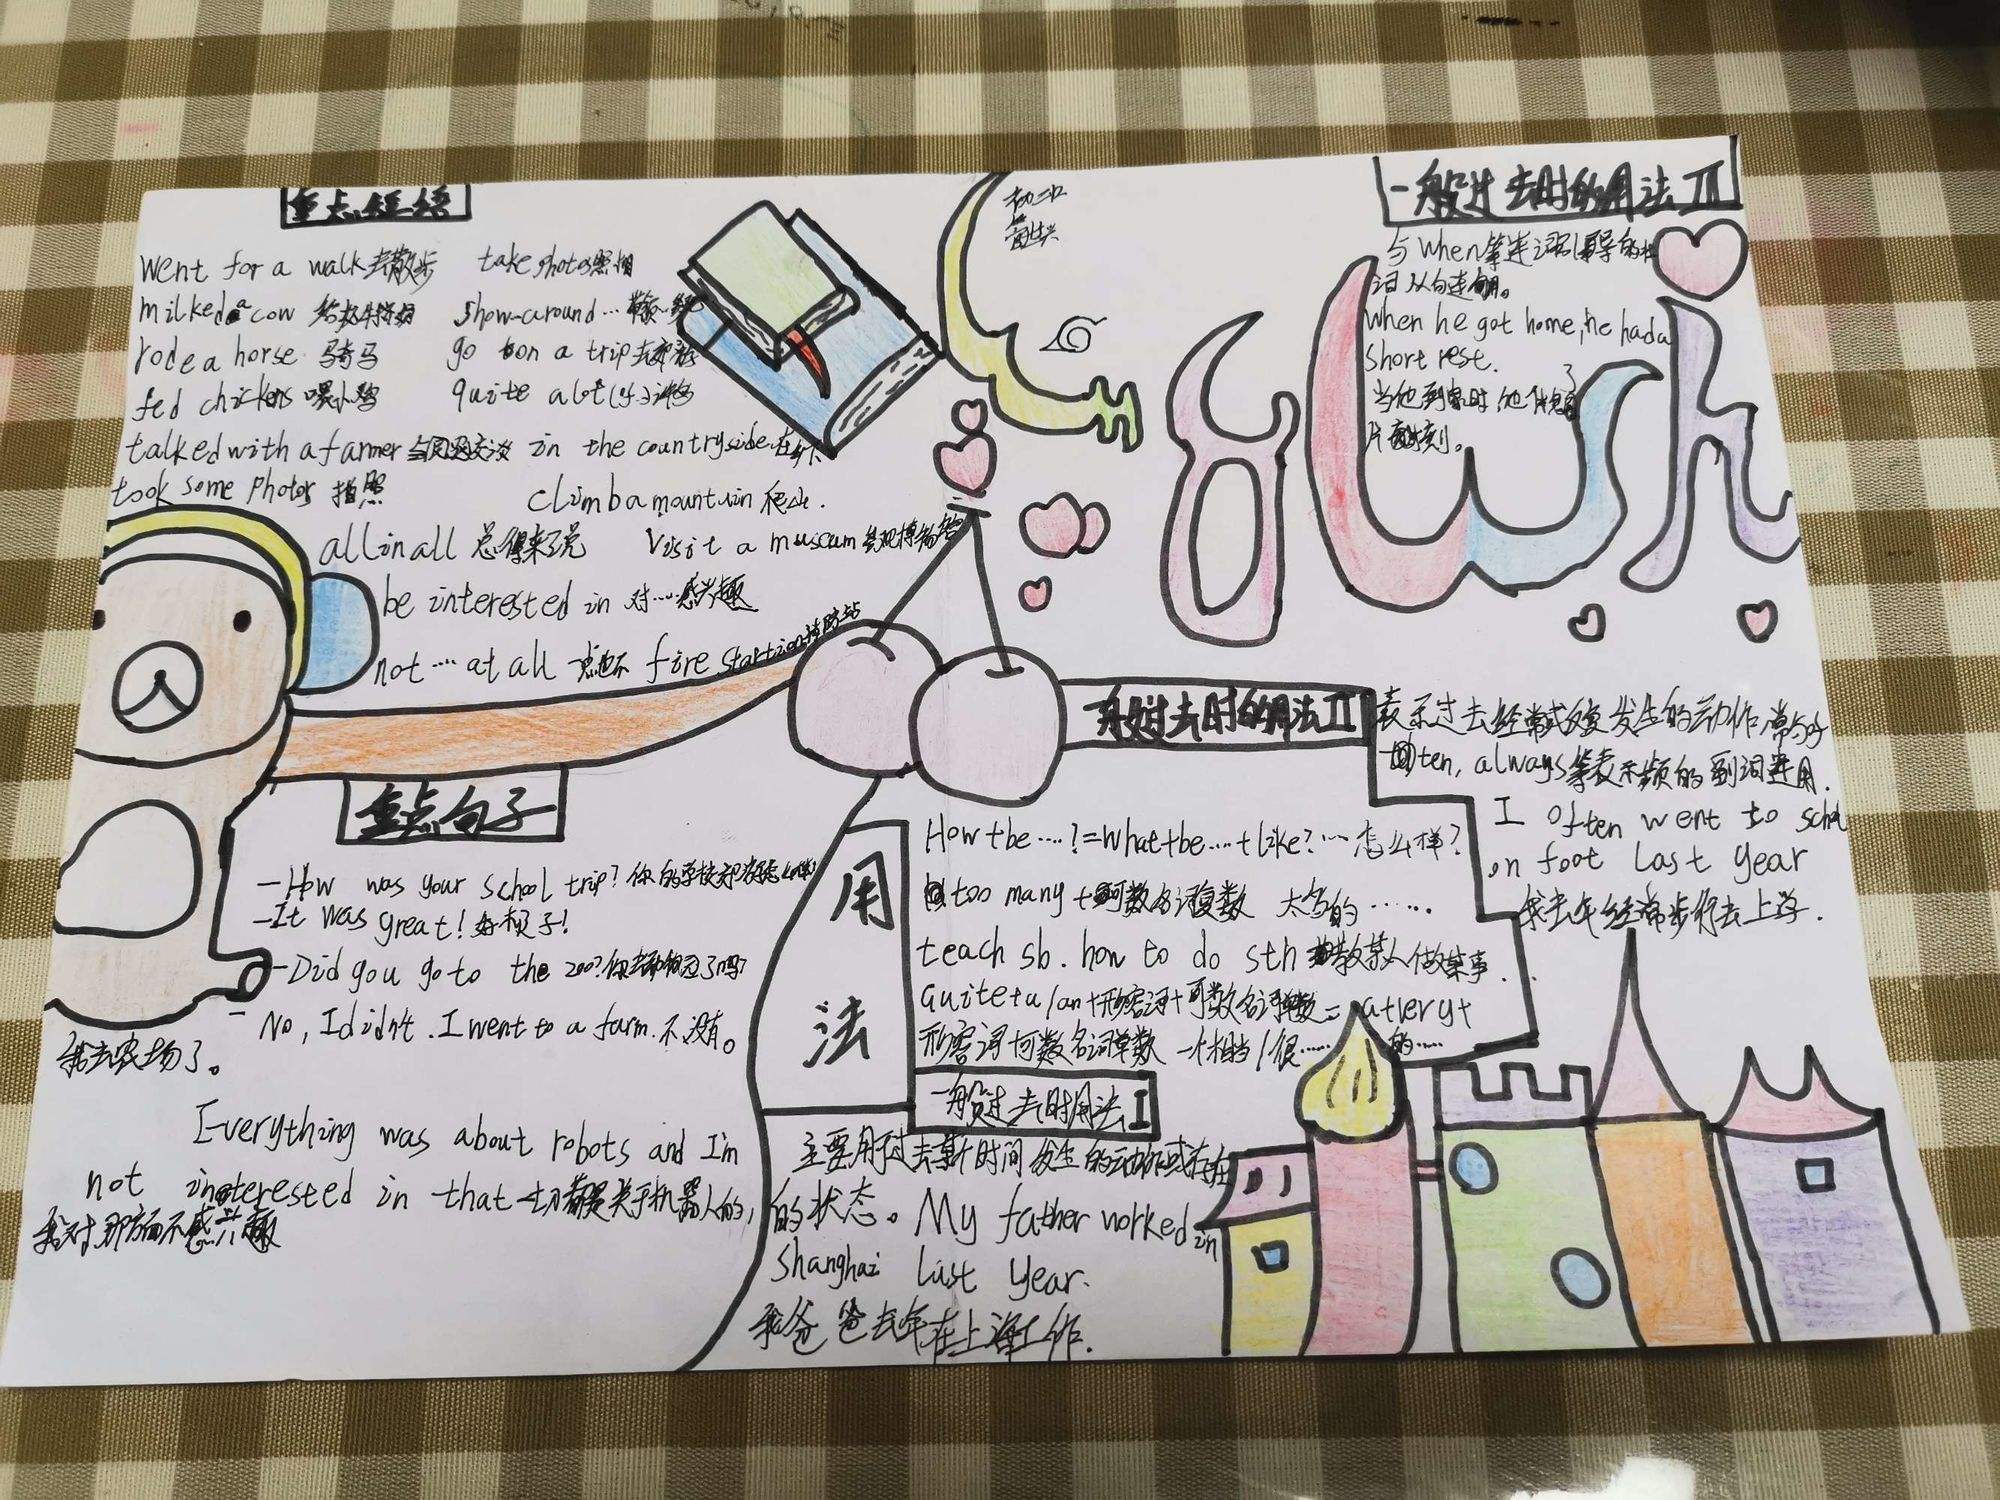 重点短语
went for a walk 去散步
take photos 照相
milked a cow 给奶牛挤奶
show around…
rode a horse 骑马
go on a trip 去郊游
fed chickens 喂小鸡
quite a lot
talked with a farmer 与农民交谈
in the countryside 在乡下
took some photos 拍照
climb a mountain 爬山.
all in all 总得来说
visit a museum 参观博物馆
be interested in 对…感兴趣
not … at all 一点也不
fire startion 消防站
重点句子
-How was your school trip?
-It was great! 好极了!
-Did you go to the zoo? 你去动物园了吗?
- No, I didn't. I went to a farm. 不,没有。
我去农场了。
Everything was about robots and I'm
not interested in that 一切都是关于机器人的,
我对那方面不感兴趣
一般过去时的用法Ⅲ
与when等连词引导的
词从句连用。
when he got home, he had a
short rest.
当他到家时,他休息了
片刻。
一般过去时的用法Ⅱ
表示过去经常或反复发生的动作,常与
often, always等表示频的副词连用.
I often went to
on foot last year
我去年经常步行去上学.
用法
How+be……?=what+be……+like?…怎么样?
too many+可数名词复数 太多的……
teach sb. how to do sth 教某人做某事.
Quite+a/an+形容词+可数名词单数=a+very+
形容词+可数名词单数 一个相当/很……的……
一般过去时用法Ⅰ
主要用于过去某个时间发生的动作或存在
的状态。My father worked in
Shanghai last year.
我爸爸去年在上海工作.